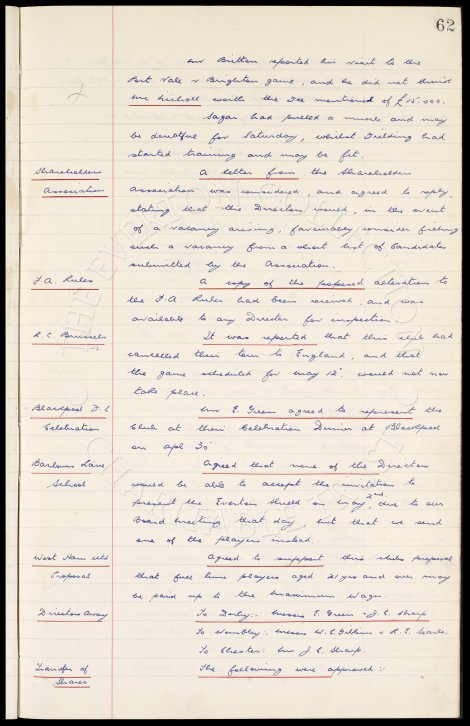 62
Mr Britten reported his visit to the
Port Vale v Brighton game, and he did not think
Mr Leekoll worth the fee mentioned of £15.000.
Sagar had pulled a muscle and may
be doubtful for Saturday, whilst Fielding had
started training and may be fit.
Shareholders A letter from the Shareholders
Association Association was considered, and agreed to reply,
stating that the Directors would, in the event
of a vacancy arising, favourably consider filling
such a vacancy from a short list of Candidates
submitted by the Association.
F.A. Rules A copy of the proposed alteration to
the F.A. Rules had been received, and was
available to any Director for inspection.
R.C. Brussels It was reported that this club had
cancelled their tour to England, and that
the game scheduled for May 12 would not now
take place.
Blackpool F.C Mr E. Green agreed to represent the
Celebration Club at their Celebration Dinner at Blackpool
on Apl 30
Barlows Lane Agreed that none of the Directors
School would be able to accept the invitation to
present the Everton Shield on May 2nd. due to our
Board Meeting that day, but that we send
one of the players instead.
West Ham Utd Agreed to support this clubs proposal
Proposal that full time players aged 21 yrs and over may
be paid up to the Maximum Wages.
Directors Away To Derby:- Messrs E. Green & J.C. Sharp
To Wembley:- Messrs W.C. Gibbins & R.E. Searle.
To Chester: Mr J.C. Sharp.
Transfer of The following were approved:-
Shares
THE EVERTON COLLECTION